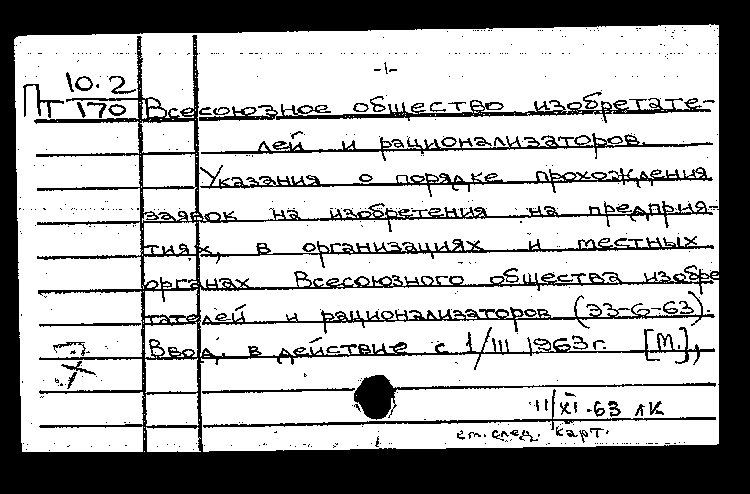 -1-
10.2
Пт 170 Всесоюзное общество изобретате-
лей и рационализаторов.
Указания о порядке прохождения
заявок на изобретения на предприя-
тиях, в организациях и местных
органах Всесоюзного общества изобре
тателей и рационализаторов (ЭЗ-6-63).
Ввод. в действие с 1/III 1963г. [М.],
11/XI-63 лк
см. след. карт.